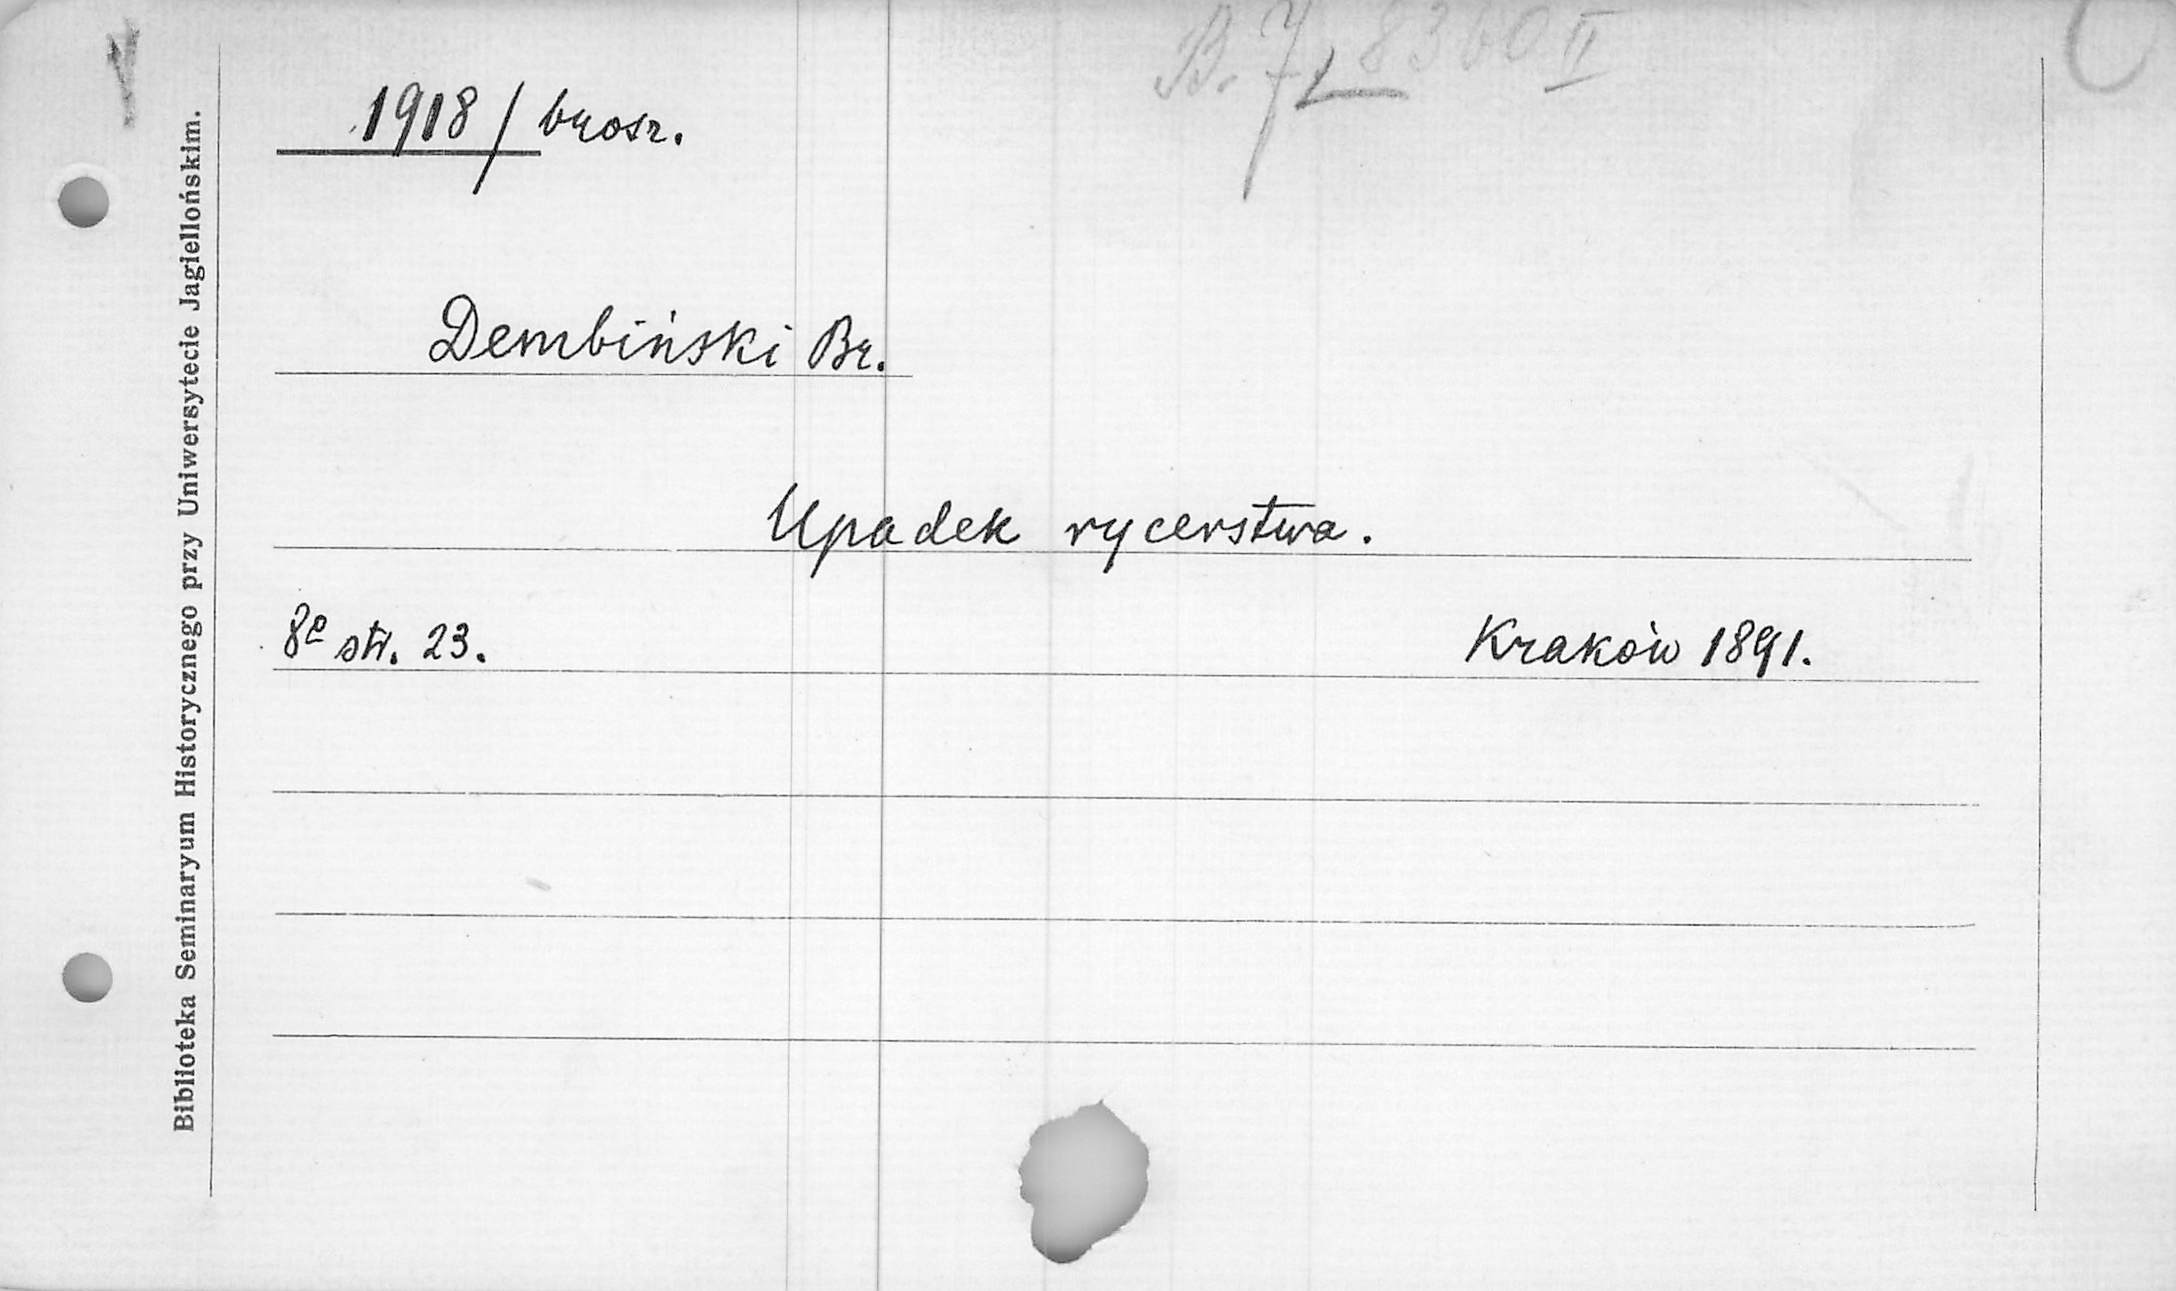 B. 7 8360 II
1918 / brosz.
Dembiński Br.
Upadek rycerstwa.
8e str. 23.
Kraków 1891.
Biblioteka Seminaryum Historycznego przy Uniwersytecie Jagiellońskim.